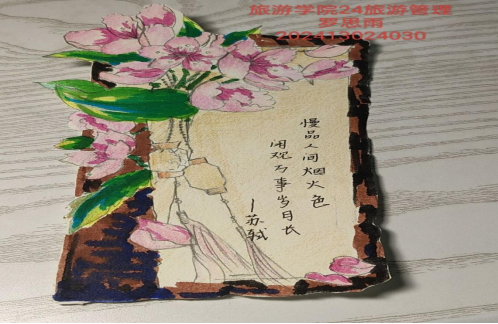 旅游学院24旅游管理
罗思雨
202413024030
慢品人间烟火色
闲观万事岁月长
—苏轼